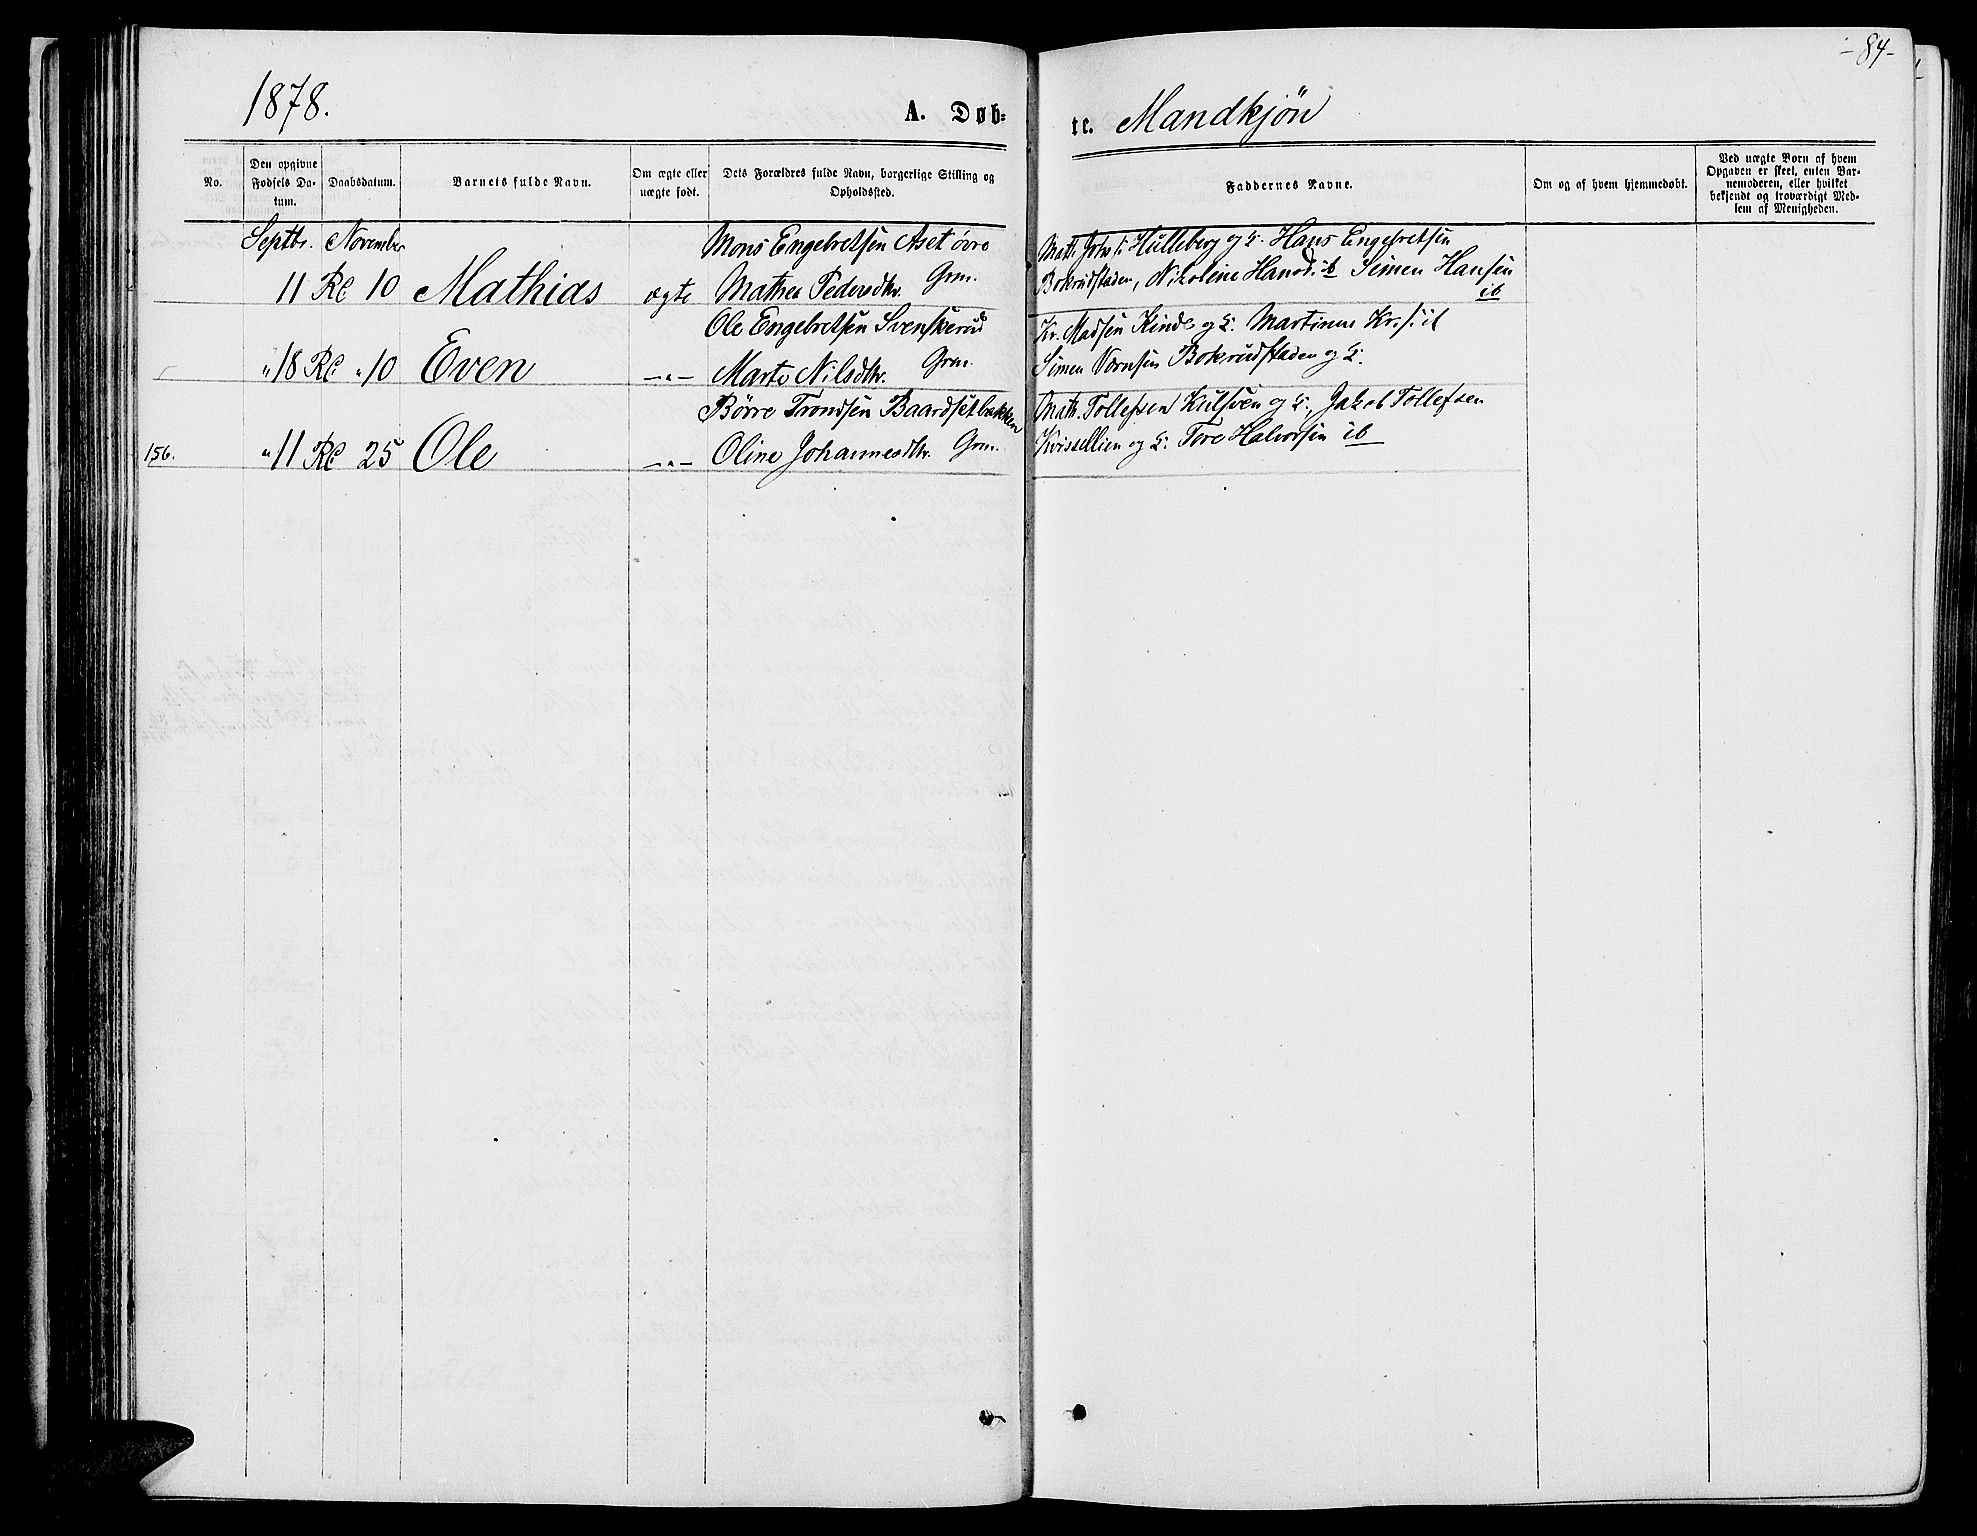 -84-
1878. A. Døb= te. Mandkjön
No.
Den opgivne Fødsels Da-tum.
Daabsdatum.
Barnets fulde Navn.
Om ægte eller uægte født.
Dets Forældres fulde Navn, borgerlige Stilling og Opholdssted.
Faddernes Navne.
Om og af hvem hjemmedøbt.
Ved uægte Børn af hvem Opgaven er skeet, enten Bar-nemoderen, eller hvilket bekjendt og troværdigt Med-lem af Menigheden.
Septbr. November Mons Engebretsen Aset övre Math. Johs. S. Hulleberg og K. Hans Engebretsen
11 RC 10 Mathias ægte Mathea Pedersdtr. Grm. Bokrudstaden, Nikoline Hansd. ib Simen Hansen
ib
Ole Engebretsen Svenskerud Kr. Madsen Kinde og K. Martinus Kr. s. ib
" 18 RC " 10 Even —"— Marte Nilsdtr. Grm. Simen Bokrudstaden og K.
Börre Trondsen Baardsetbakken Math. Tollefsen Kulsven og K. Jakob Tollefsen
156. " 11 RC 25 Ole —"— Oline Johannesdtr. Grm. og K. Tore Halvorsen ib